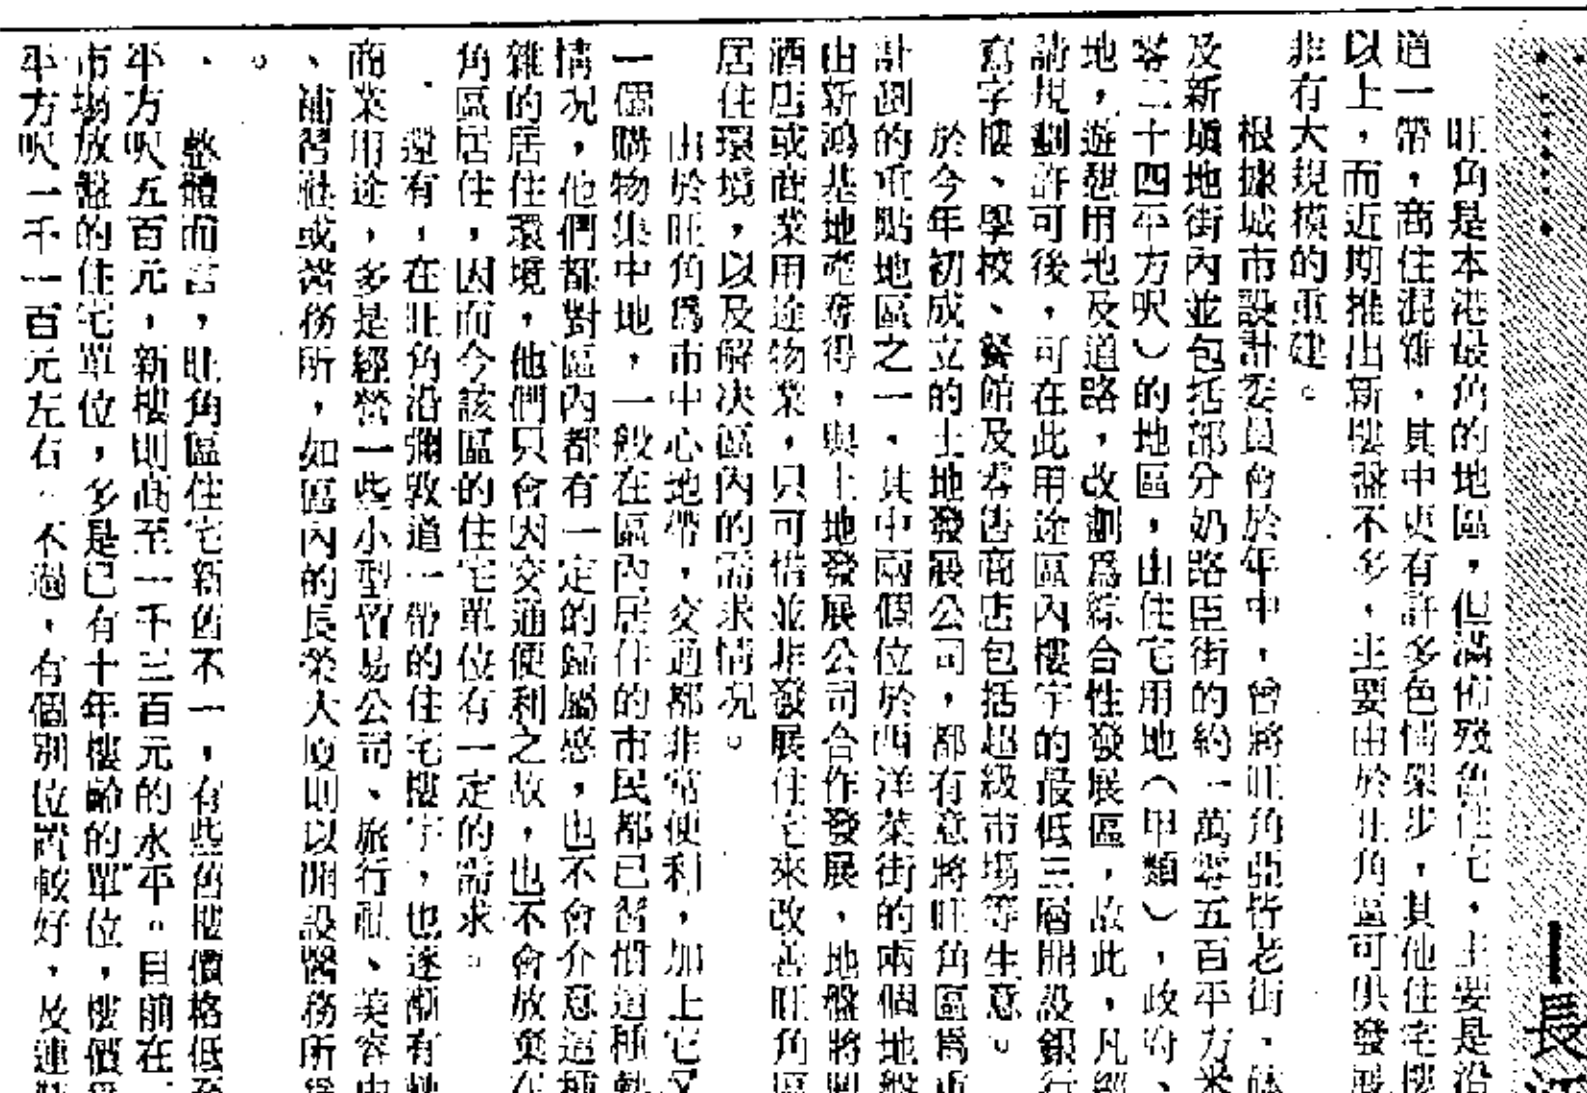 長
旺角是本港最舊的地區，但滿佈殘舊住宅，主要是沿
道一帶，商住混雜，其中更有許多色情架步，其他住宅樓
以上，而近期推出新樓盤不多，主要由於旺角區可供發展
非有大規模的重建。
根據城市設計委員會於年中，曾將旺角亞皆老街、
及新塡地街內並包括部分奶路臣街的約一萬零五百平方米
零二十四平方呎）的地區，由住宅用地（甲類），政府、
地，遊憩用地及道路，改劃爲綜合性發展區，故此，凡經
請規劃許可後，可在此用途區內樓宇的最低三層開設銀行
寫字樓、學校、餐館及零售商店包括超級市場等生意。
於今年初成立的土地發展公司，都有意將旺角區爲重
計劃的重點地區之一，其中兩個位於西洋菜街的兩個地盤
由新鴻基地產奪得，與土地發展公司合作發展，地盤將興
酒店或商業用途物業，只可惜並非發展住宅來改善旺角區
居住環境，以及解決區內的需求情況。
由於旺角爲市中心地帶，交通都非常便利，加上它又
一個購物集中地，一般在區內居住的市民都已習慣這種熱
情况，他們都對區內都有一定的歸屬感，也不會介意這種
雜的居住環境，他們只會因交通便利之故，也不會放棄在
角區居住，因而今該區的住宅單位有一定的需求。
還有，在旺角沿彌敦道一帶的住宅樓宇，也逐漸有
商業用途，多是經營一些小型貿易公司、旅行社、美容
、補習社或醫務所，如區內的長榮大廈則以開設醫務所爲
。
整體而言，旺角區住宅新舊不一，有些舊樓價格低至
平方呎五百元，新樓則高至一千三百元的水平。目前在
市場放盤的住宅單位，多是已有十年樓齡的單位，樓價
平方呎一千一百元左右。不過，有個別位置較好，及連